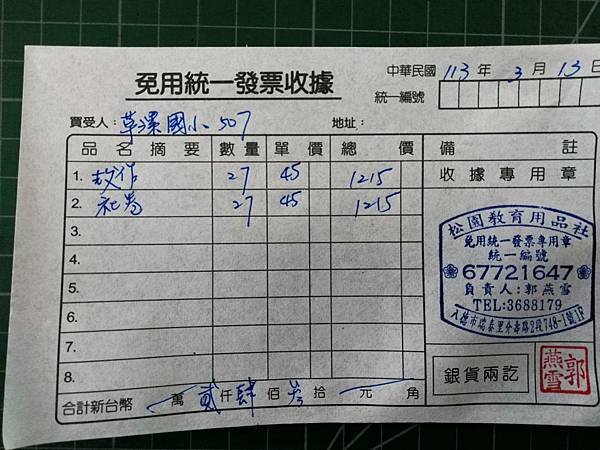 免用統一發票收據
中華民國 113 年 3 月 13 日
統一編號
買受人： 草漯國小 507 地址：
品名摘要 數量 單價 總價 備註
1. 27 45 1215 收據專用章
2. 社卷 27 45 1215
3.
4.
5.
6.
7.
8.
松園教育用品社
免用統一發票專用章
統一編號
67721647
負責人：郭燕雪
TEL:3688179
八德市瑞泰里介壽路2段748-1號1F
銀貨兩訖
郭燕雪
合計新台幣 萬 貳 仟 肆 佰 参 拾 元 角